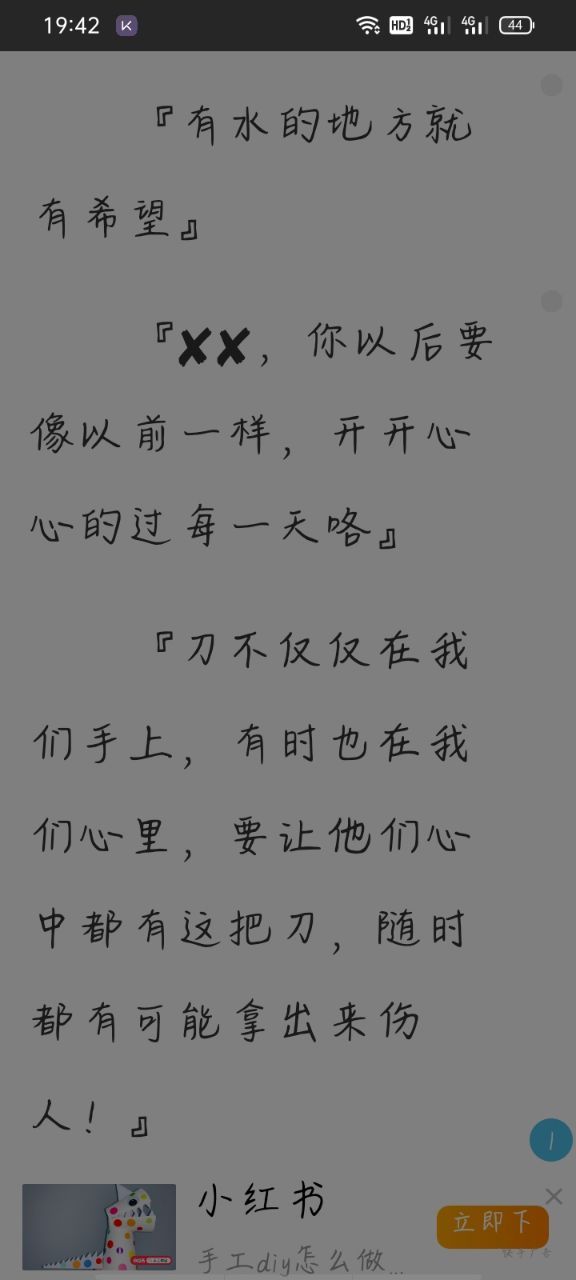 19:42 HD1 2 4G 4G 44
『有水的地方就
有希望』
『✘✘，你以后要
像以前一样，开开心
心的过每一天咯』
『刀不仅仅在我
们手上，有时也在我
们心里，要让他们心
中都有这把刀，随时
都有可能拿出来伤
人！』
1
小红书
立即下
手工diy怎么做...
快手广告